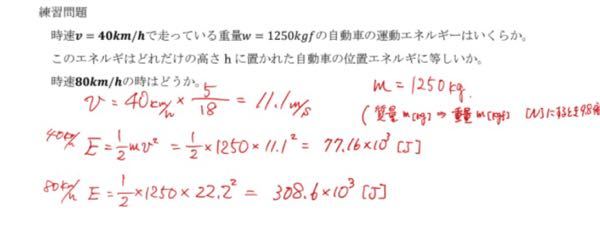 練習問題
時速v = 40km/hで走っている重量w = 1250kgfの自動車の運動エネルギーはいくらか。
このエネルギはどれだけの高さ h に置かれた自動車の位置エネルギに等しいか。
時速80km/hの時はどうか。
v = 40km/h × 5/18 = 11.1m/s
m = 1250kg.
(質量m[kg] ⇒ 重量m[kgf] [N]にするとき9.8倍
40km/h E = 1/2 mv² = 1/2 × 1250 × 11.1² = 77.16×10³ [J]
80km/h E = 1/2 × 1250 × 22.2² = 308.6×10³ [J]